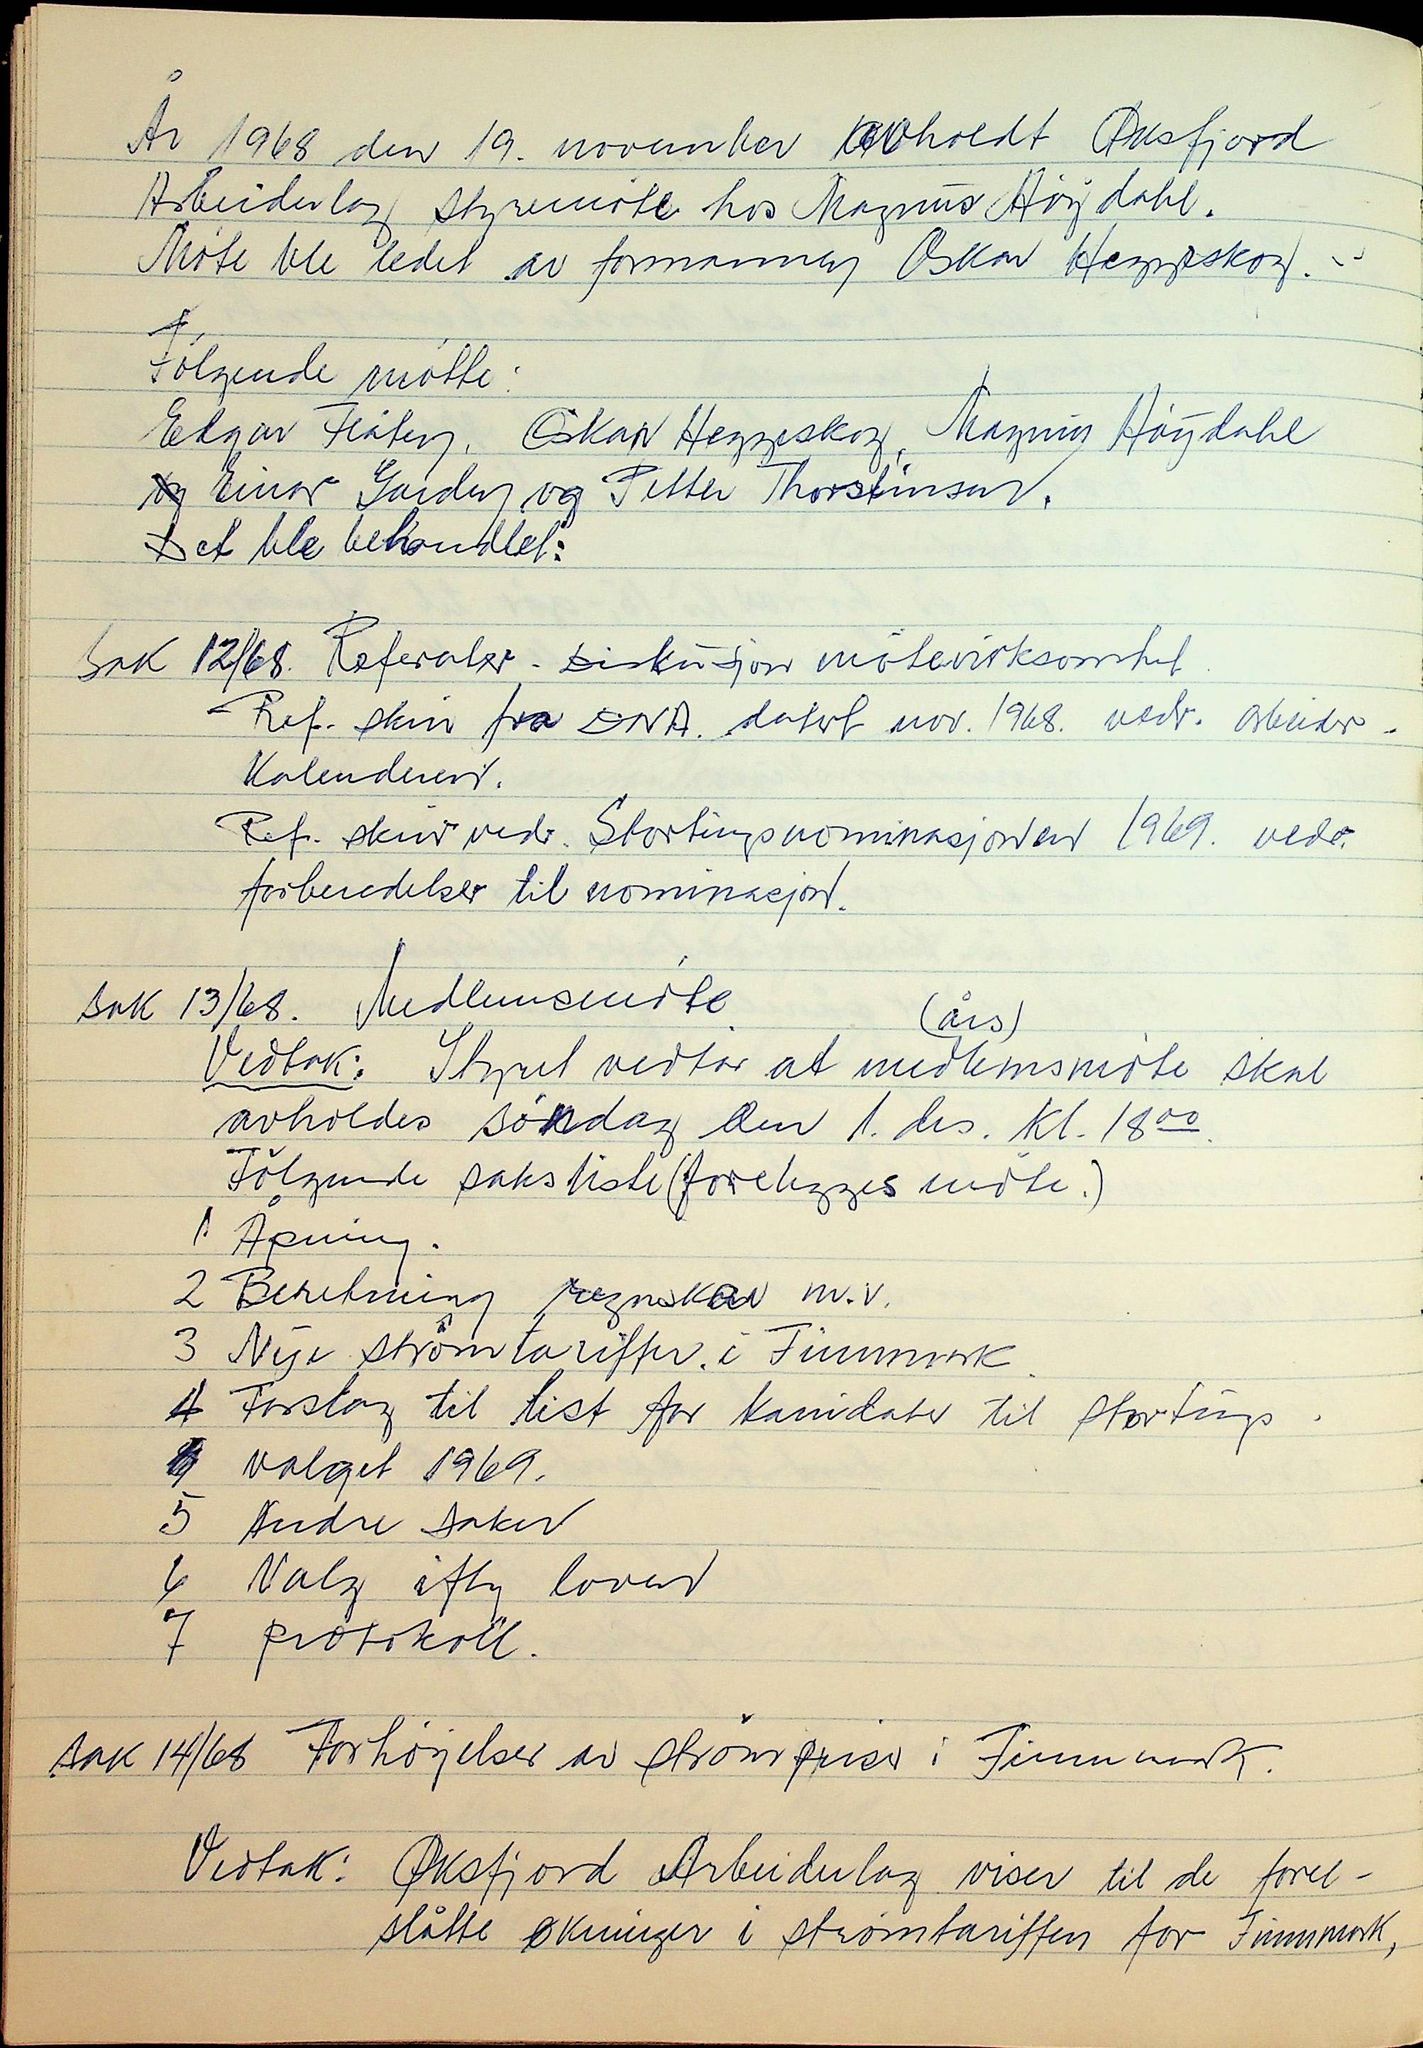 År 1968 den 19. november avholdt Øksfjord
Arbeiderlag styremöte hos Magnus Höydahl.
Möte ble ledet av formannen Oskar Heggeskog.
Fölgende mötte:
Edgar Flåten, Oskar Heggeskog, Magnus Höydahl
og Einar Garden og Petter Thorstensen.
Det ble behandlet:
Sak 12/68. Referater - Diskusjon mötevirksomhet.
Ref. skriv fra DNA. datert nov. 1968. vedr. arbeider-
kalenderen.
Ref. skriv vedr. Stortingsnominasjonen 1969. vedr.
forberedelser til nominasjon.
Sak 13/68. Medlemsmöte.
(års)
Vedtak: Styret vedtar at medlemsmöte skal
avholdes söndag den 1. des. kl. 18 00.
Fölgende saksliste (forelegges möte.)
1 Åpning.
2 Beretning regnskav m.v.
3 Nye strömtariffer i Finnmark
4 Forslag til list for kanidater til stortings-
valget 1969.
5 Andre saker
6 Valg iflg loven
7 protokoll.
Sak 14/68 Forhöyelser av strömpriser i Finnmark.
Vedtak: Øksfjord Arbeiderlag viser til de forel-
slåtte økninger i strømtariffen for Finnmark,